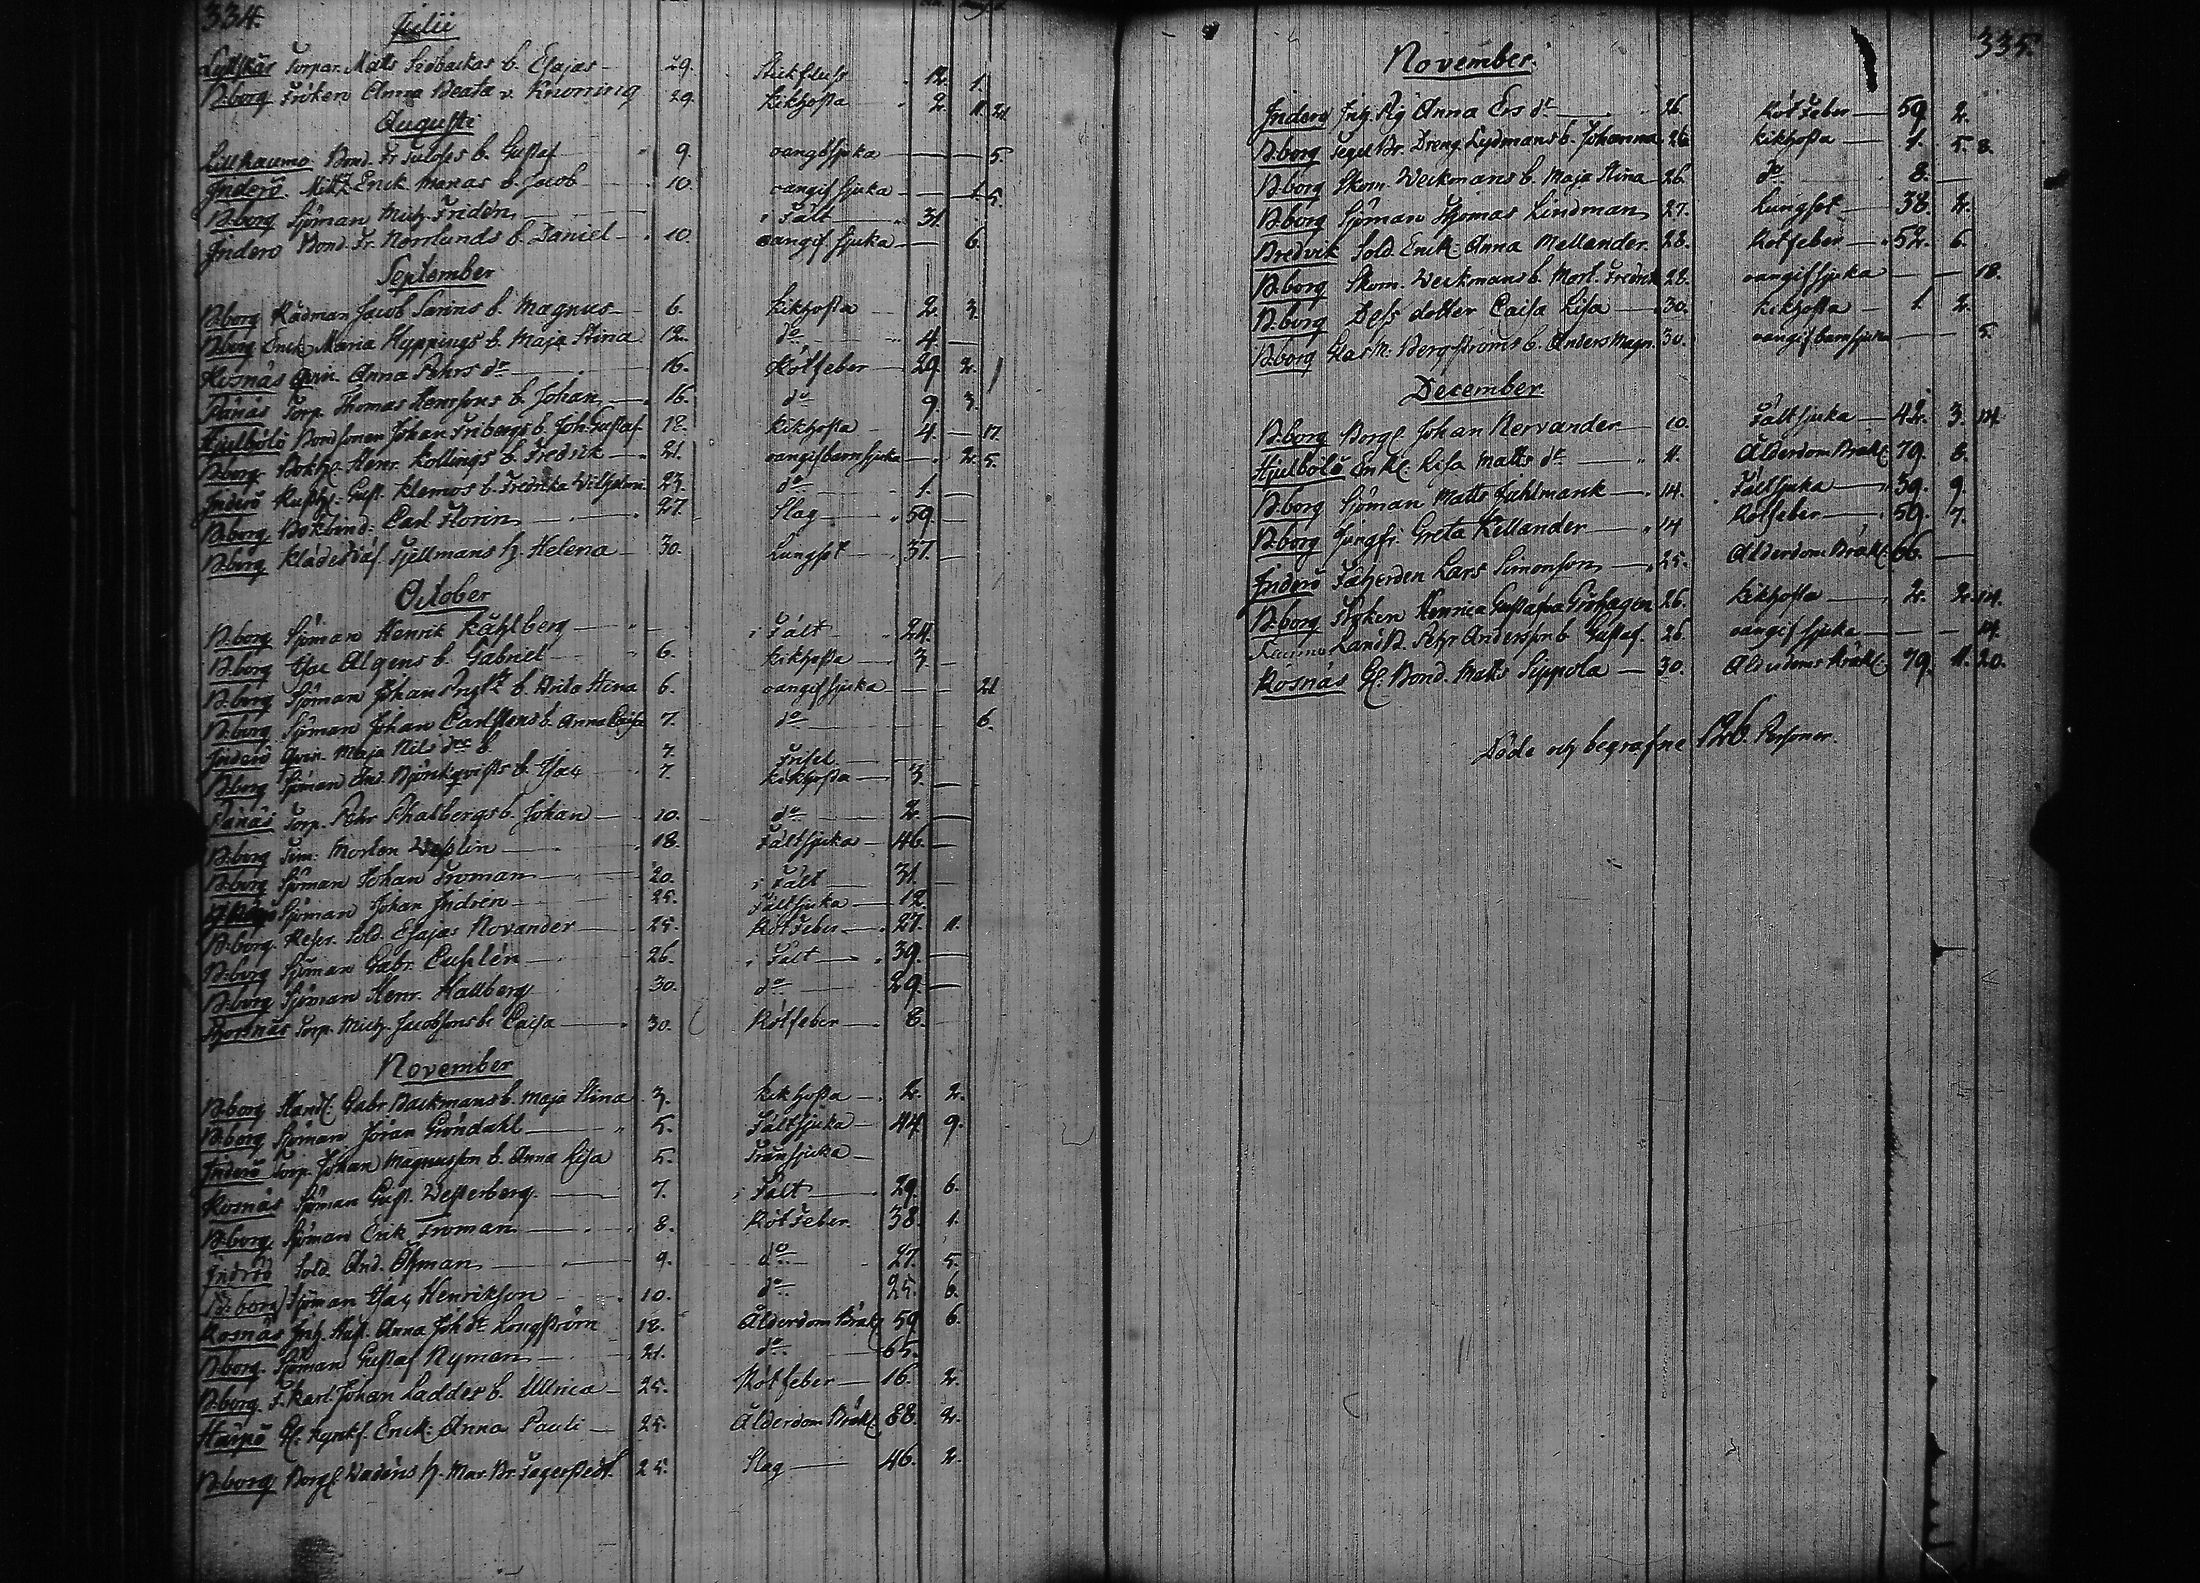 334.
Julii
Torpar. Matts Sedbackas b. Esajas 29. Stickfluss 12. 1.
B:borg Fröken Anna Beata v. Knorring 29. kikhosta 2. 11. 21.
Augusti
Lillraumo Bond. Fr b. Gustaf 9. oangifsjuka 5.
Inderö Mitts Erik Manas b. Jacob 10. oangif sjuka 1. 5.
B:borg Sjöman Mich. Fridén i Fält 31.
Inderö Bond. Fr. Norrlunds b. Daniel 10. oangif sjuka 6.
September
B:borg Rådman Jacob Sarins b. Magnus 6. kikhosta 2. 3.
B:borg Enck. Maria Hyppings b. Maja Stina 12. do 4.
Rosnäs Qvin. Anna Pehrs dr 16. Rötfeber 29. 2.
Pänäs Torp. Thomas Henrssons b. Johan 16. do 9. 3.
Hjulbölö Bondsonen Johan Fribergs b. Joh. Gustaf 18. kikhosta 4. 17.
B:borg Bokh. Henr. Kollings b. Fredrik 21. oangifbarnsjuka 2. 5.
Inderö Gust. Klemos b. Fredrika Wilhelm. 23. do 1.
B:borg Bokbind. Carl Florin 27. Slag 59.
B:borg Klädesväf. Fjellmans h. Helena 30. Lungsot 37.
October
B:borg Sjöman Henrik Kåhlberg i Fält 24.
B:borg Isac Algens b. Gabriel 6. kikhosta 3.
B:borg Sjöman Johan b. Anna Stina 6. oangif sjuka 21.
B:borg Sjöman Johan Carlstens b. Anna Caisa 7. do 6.
Inderö Qvin. Maja Nils drs b. 7. Frisel
B:borg Sjöman And. Björkqvists b. Isac 7. kikhosta 3.
Pänäs Torp. Pehr Thalbergs b. Johan 10. do 2.
B:borg Tim. Morten Wesslin 18. Fältsjuka 46.
B:borg Sjöman Johan Froman 20. i Fält 31.
Sjöman Johan Indrén 25. Fältsjuka 12.
B:borg Reser. Sold. Esajas Novander 25. Röt Feber 27. 11.
B:borg Sjöman Gabr. Cuhlén 26. i Fält 39.
B:borg Sjöman Henr. Hallberg 30. do 29.
Torp. Mich. Jacobsons b. Caisa 30. Rötfeber 8.
November
B:borg Handl. Gabr. Backmans b. Maja Stina 3. kikhosta 2. 2.
B:borg Sjöman Jöran Gröndahl 5. Fältsjuka 44. 9.
Inderö Torp. Johan Magnusson b. Anna Lisa 5. Trånsjuka
Rosnäs Sjöman Gust. Westerberg 7. i Fält 29. 6.
B:borg Sjöman Erik Froman 8. Röt Feber 38. 1.
Inderö Sold. And. Öhman 9. do 27. 5.
B:borg Sjöman Isac Henrikson 10. do 25. 6.
Rosnäs Inh. Hust. Anna Joh dr Longström 12. Ålderdom Bräkl. 59. 6.
B:borg Sjöman Gustaf Nyman 21. do 65.
B:borg F. Karl. Johan Ladders b. Ullrica 25. Rötfeber 16. 2.
Enck. Anna Pauli 25. Ålderdom Bräkl. 88. 2.
B:borg Borgl. Wadéns h. Mar. Br. Fagerstedt 25. Slag 46. 2.
335.
November.
Inderö Inh. Pig. Anna Ers dr 26. Röt Feber 59. 2.
B:borg Tegel Br. Dreng. Lydmans b. Johanna 26. kikhosta 1. 5. 8.
B:borg Skom. Weckmans b. Maja Stina 26. do 8.
B:borg Sjöman Thomas Lindman 27. Lungsot 38. 2.
Bredvik Sold. Enck. Anna Mellander 28. Rötfeber 52. 6.
B:borg Skom. Weckmans b. Mort. Fredrik 28. oangifsjuka 18.
B:borg Dess dotter Caisa Lisa 30. kikhosta 1. 2.
B:borg Glas M. Bergströms b. Anders Magn. 30. oangifbarnsjuka 5.
December
B:borg Borgl. Johan Nervander 10. Fältsjuka 42. 3. 14.
Hjulbölö Enk. Lisa Matts dr 11. Ålderdom Bräkl. 79. 8.
B:borg Sjöman Matts Kuhlmark 14. Fältsjuka 39. 9.
B:borg Jungfr. Greta Kellander 14 Rötfeber 59. 7.
Inderö Fäherden Lars Simonson 25. Ålderdom Bräkl. 66.
B:borg Henrica Gustafva 26. kikhosta 2. 2. 14.
Raumo LandB. Pehr Andersson b. Gustaf 26. oangif sjuka 14.
Rosnäs Gl. Bond. Matts Sippola 30. Ålderdoms Bräkl. 79. 11. 20.
Döde och begrafne 126. Personer.